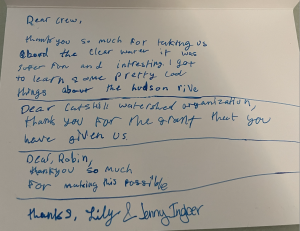 Dear Crew,
thank you so much for taking us
abord the Clear water it was
super fun and intresting. I got
to learn some pretty
things about the hudson rive
Dear Catskill watershed organization,
thank you for the grant that you
have given us
Dear, Robin,
thank you so much
for making this possible
thanks, Lily & Jenny